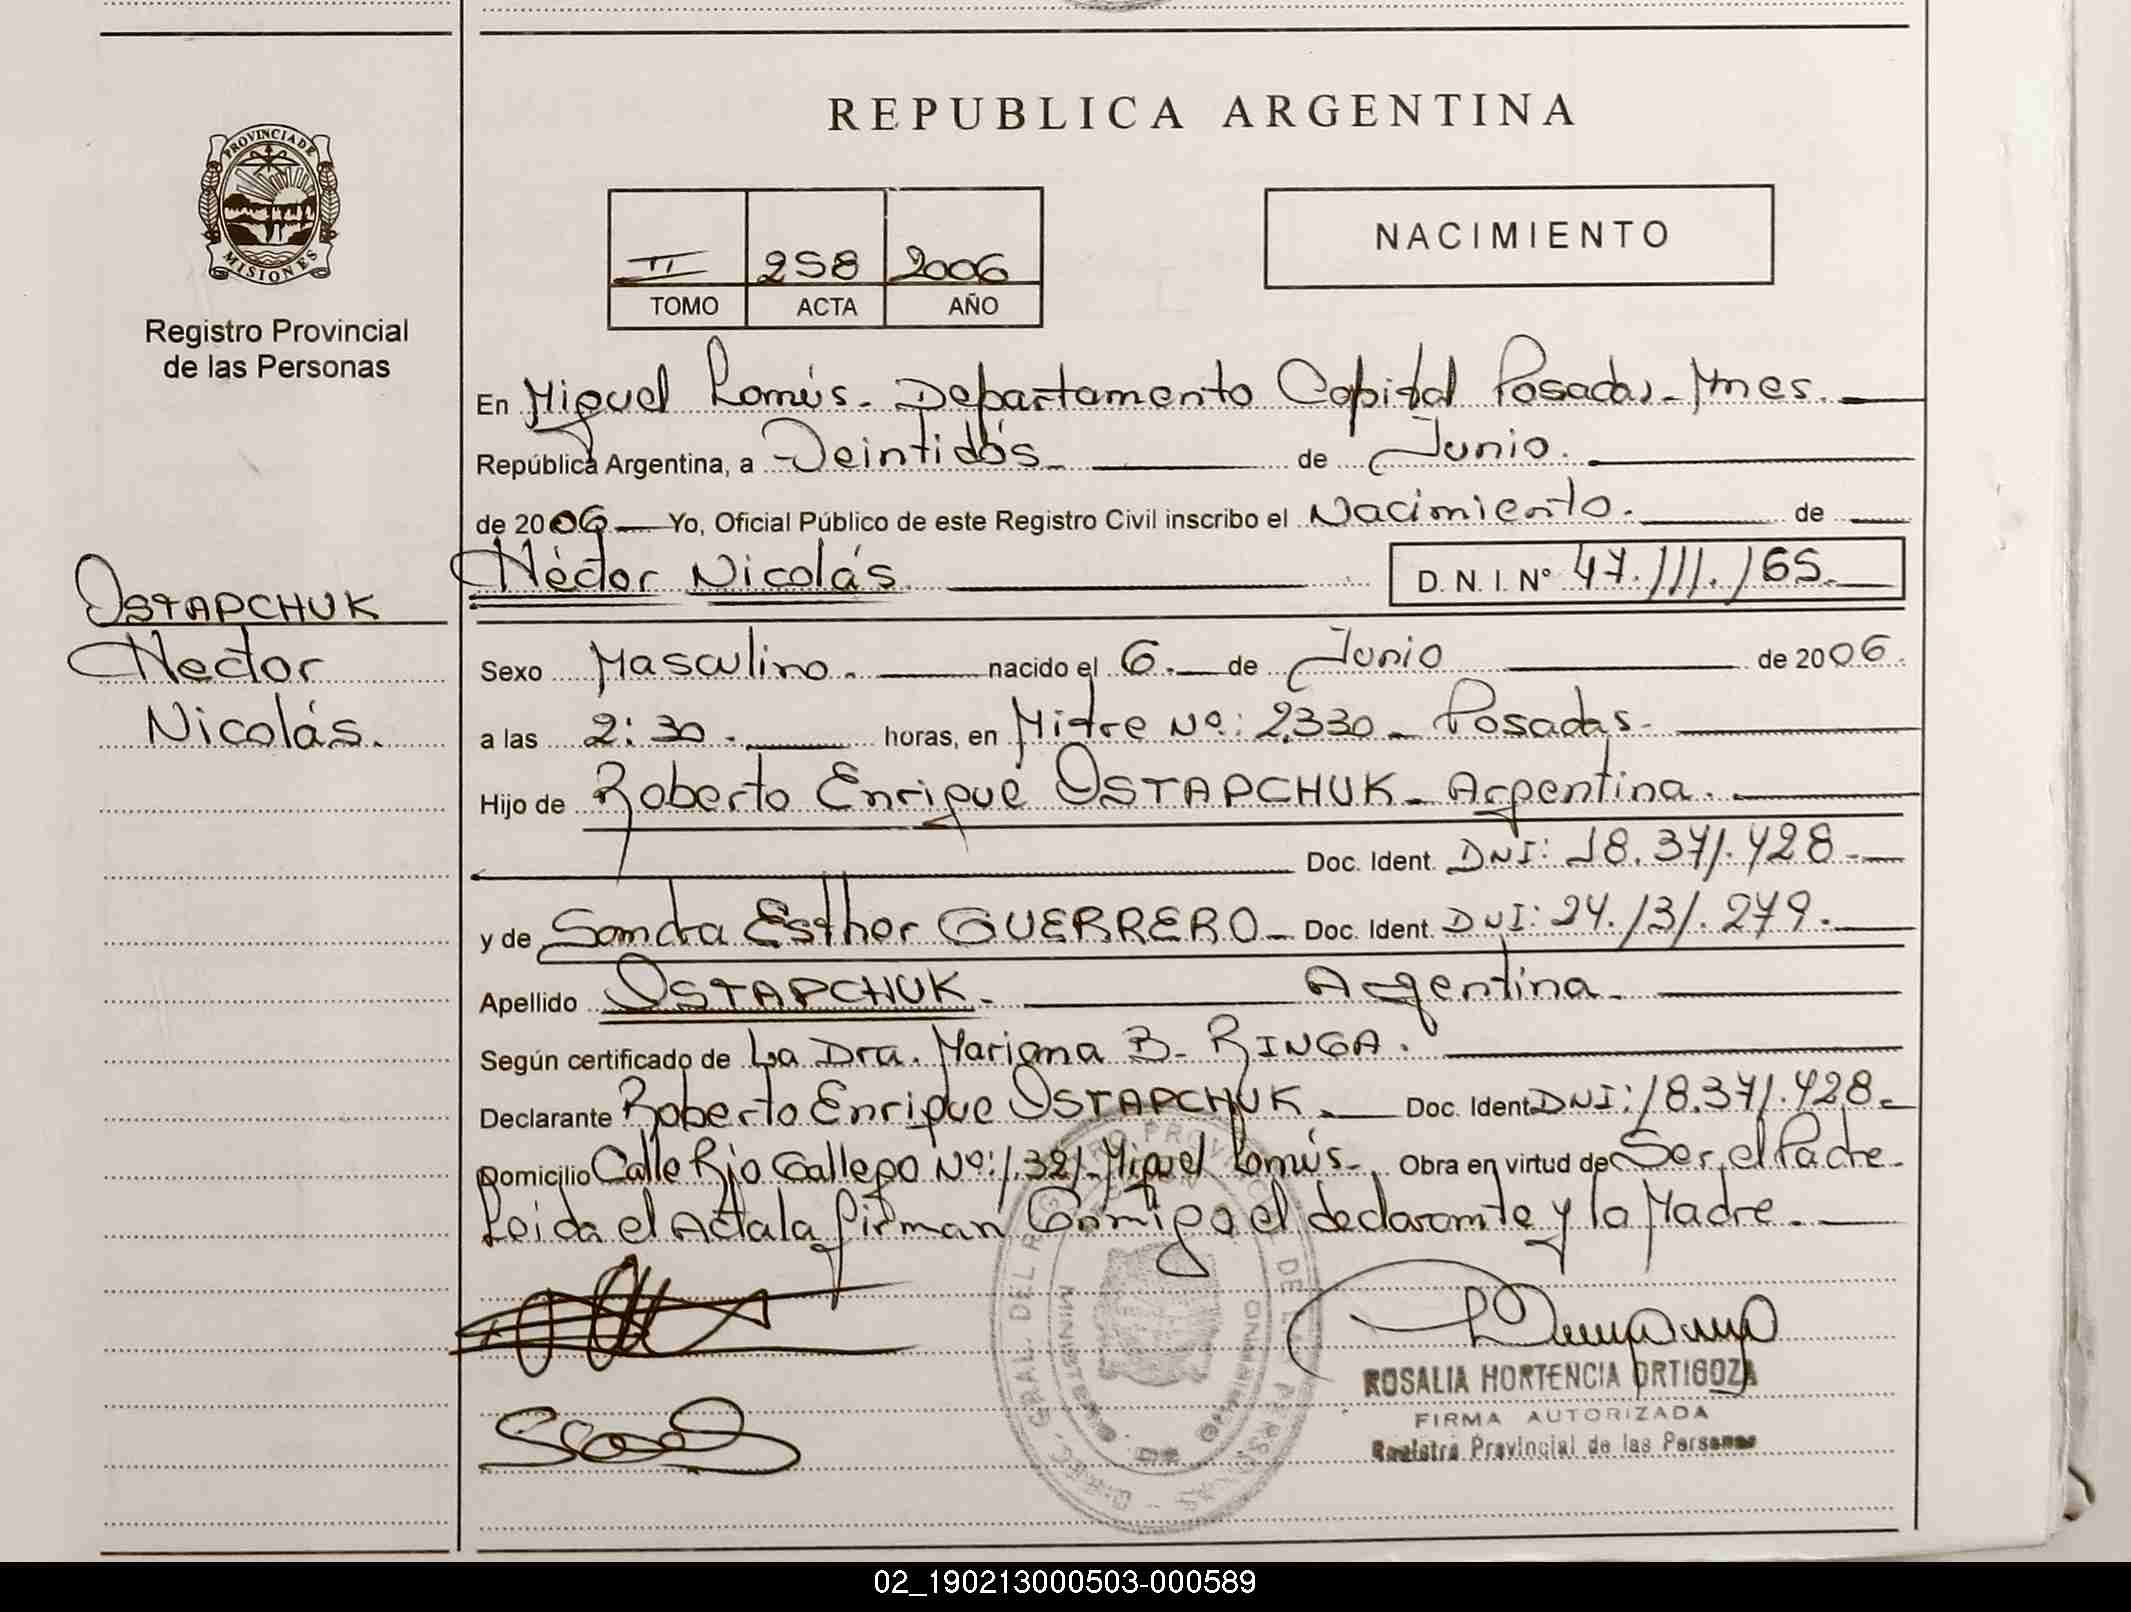 REPUBLICA ARGENTINA
PROVINCIA DE
MISIONES
Registro Provincial
de las Personas
II 258 2006
TOMO ACTA AÑO
NACIMIENTO
En Miguel Lanús. Departamento Capital Posadas - Mnes.
República Argentina, a Veintidós de Junio.
de 2006 Yo, Oficial Público de este Registro Civil inscribo el Nacimiento. de
Héctor Nicolás D. N. I. Nº 47.111.165.
OSTAPCHUK
Hector
Nicolás.
Sexo Masculino. nacido el 6. de Junio de 2006.
a las 2:30. horas, en Mitre Nº: 2.330 - Posadas-
Hijo de Roberto Enrique OSTAPCHUK - Argentina.
Doc. Ident. DNI: 18.371.428-
y de Sandra Esther GUERRERO - Doc. Ident. DNI: 24.131.279.
Apellido OSTAPCHUK - Argentina.
Según certificado de La Dra. Mariana B. RINGA.
Declarante Roberto Enrique OSTAPCHUK. Doc. Ident. DNI: 18.371.428-
Domicilio Calle Rio Gallego Nº: 1.321 - Miguel Lanús. Obra en virtud de Ser el Padre.
Leida el Acta la firman Conmigo el declarante y la Madre.
ROSALIA HORTENCIA ORTIGOZA
FIRMA AUTORIZADA
Registro Provincial de las Personas
02_190213000503-000589